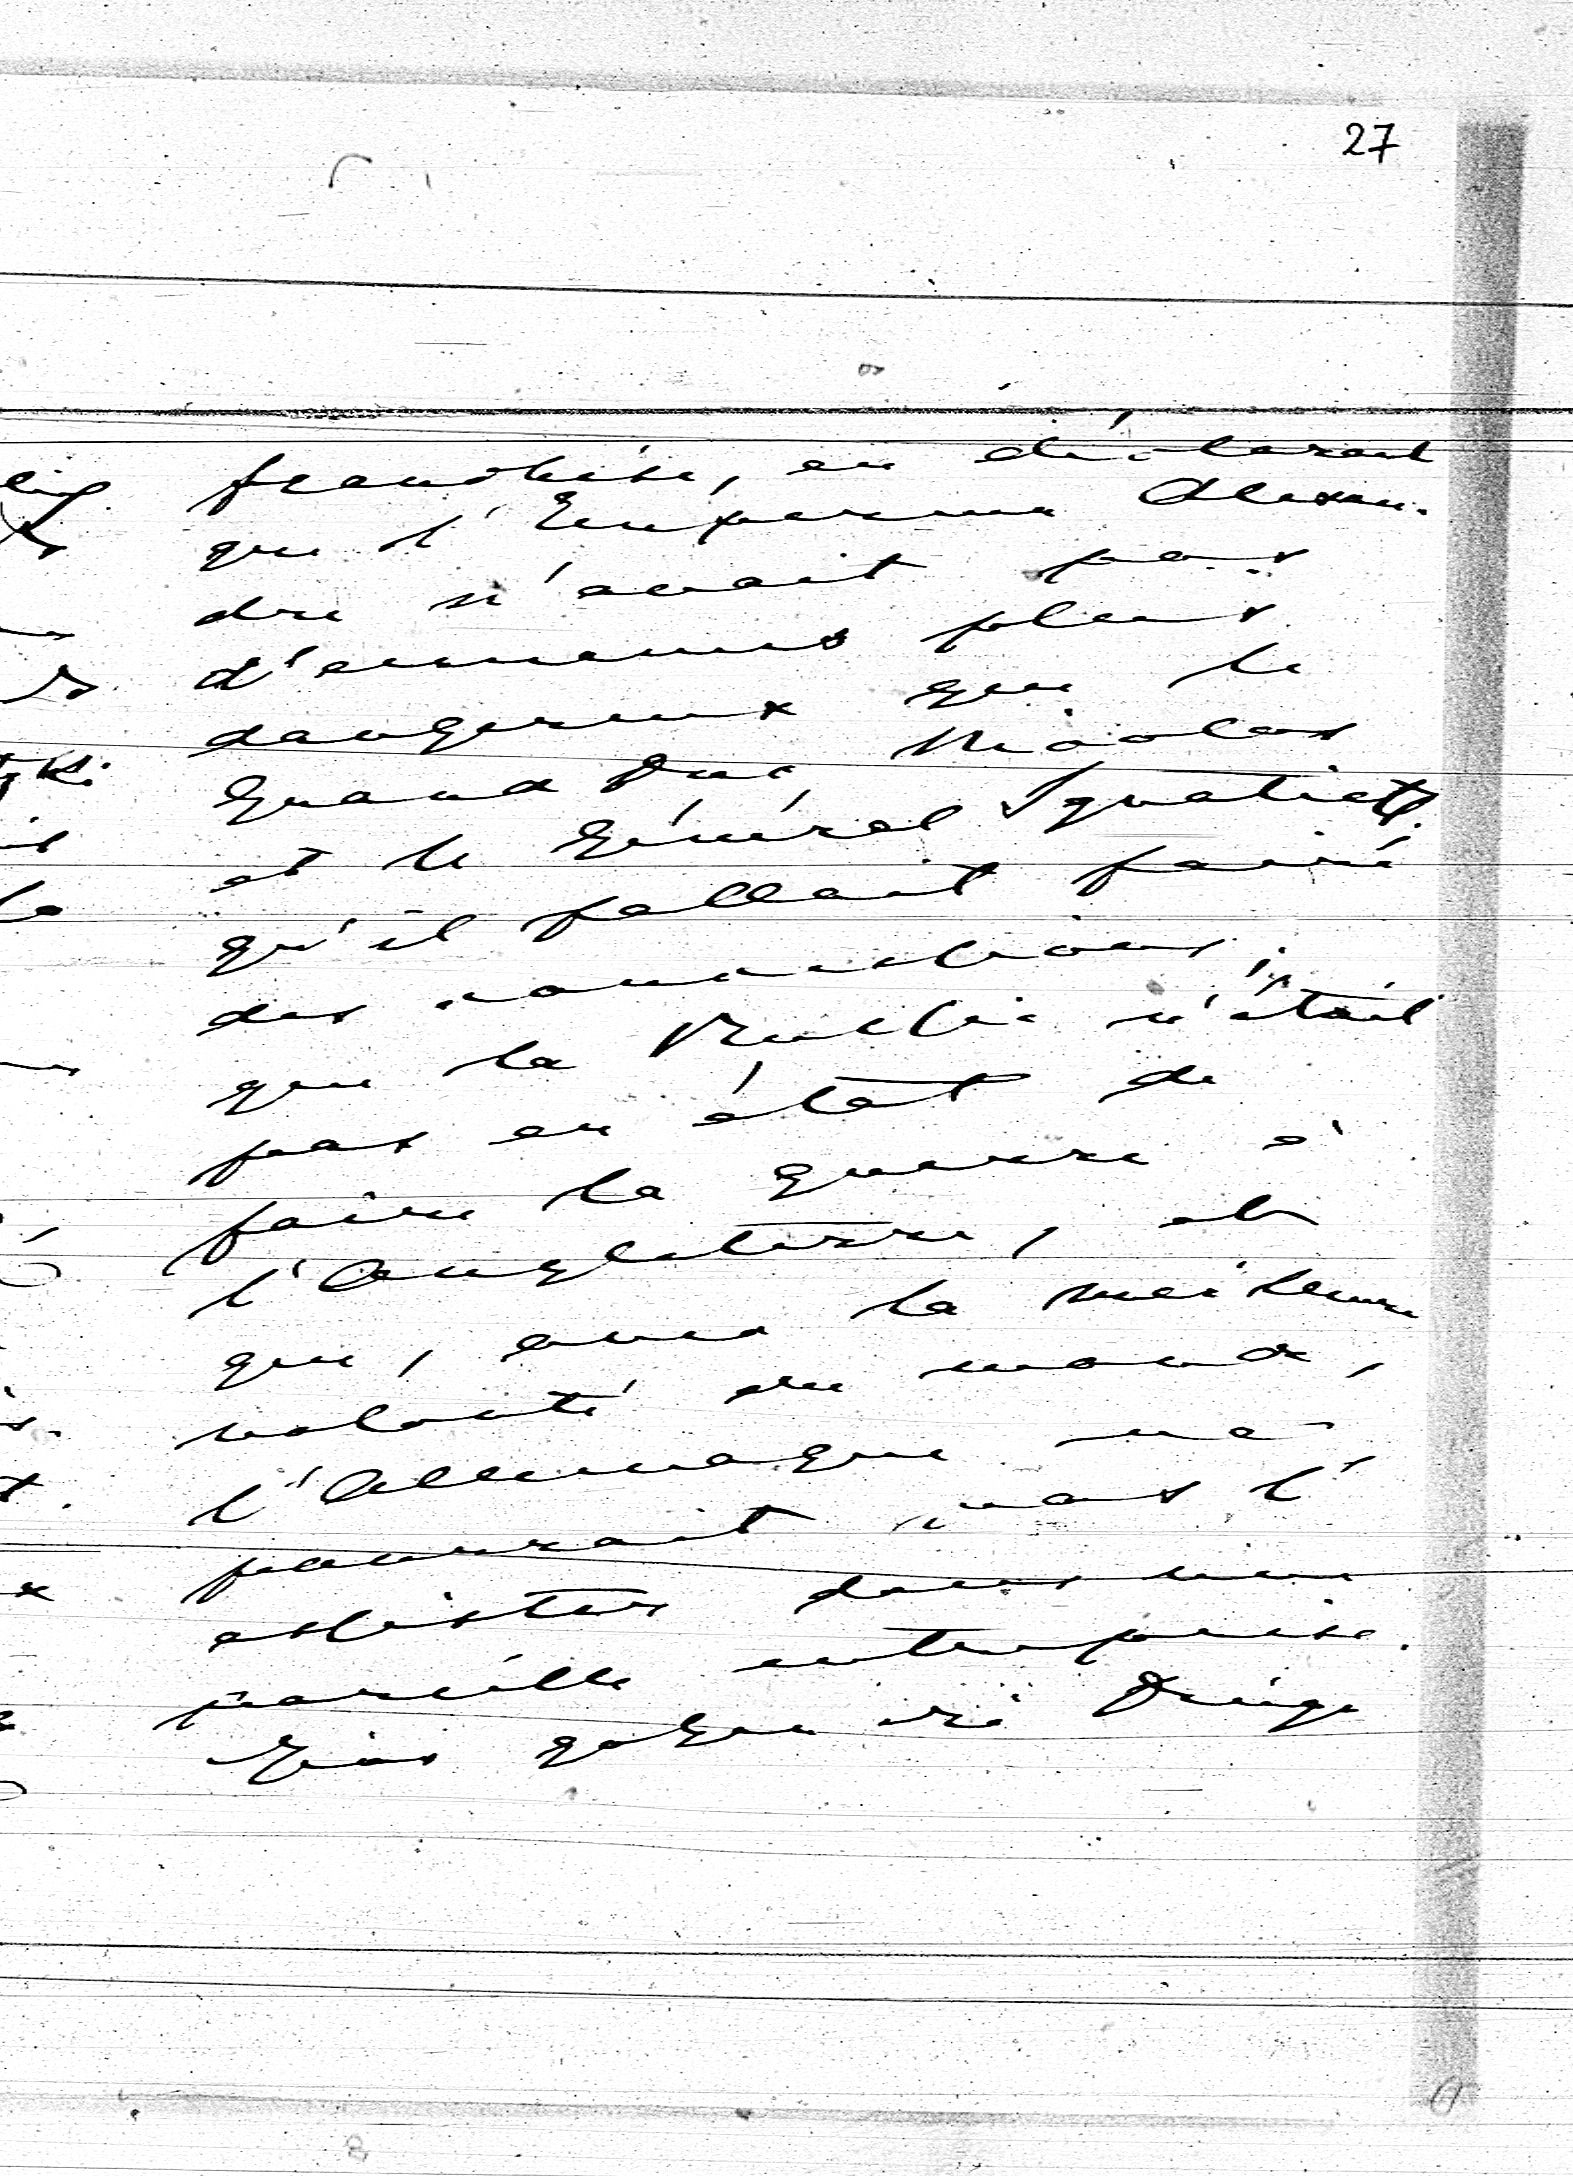 27
franchise, en déclarant
que l'Empereur Alexan-
dre n'avait pas
d'ennemis plus
dangereux que le
Grand Duc Nicolas
et le Général Ignatieff,
qu'il fallait faire
des concessions,
que la Russie n'était
pas en état de
faire la guerre à
l'Angleterre, et
que, avec la meilleure
volonté du monde,
l'Allemagne ne
pourrait pas l'
assister dans une
pareille entreprise.